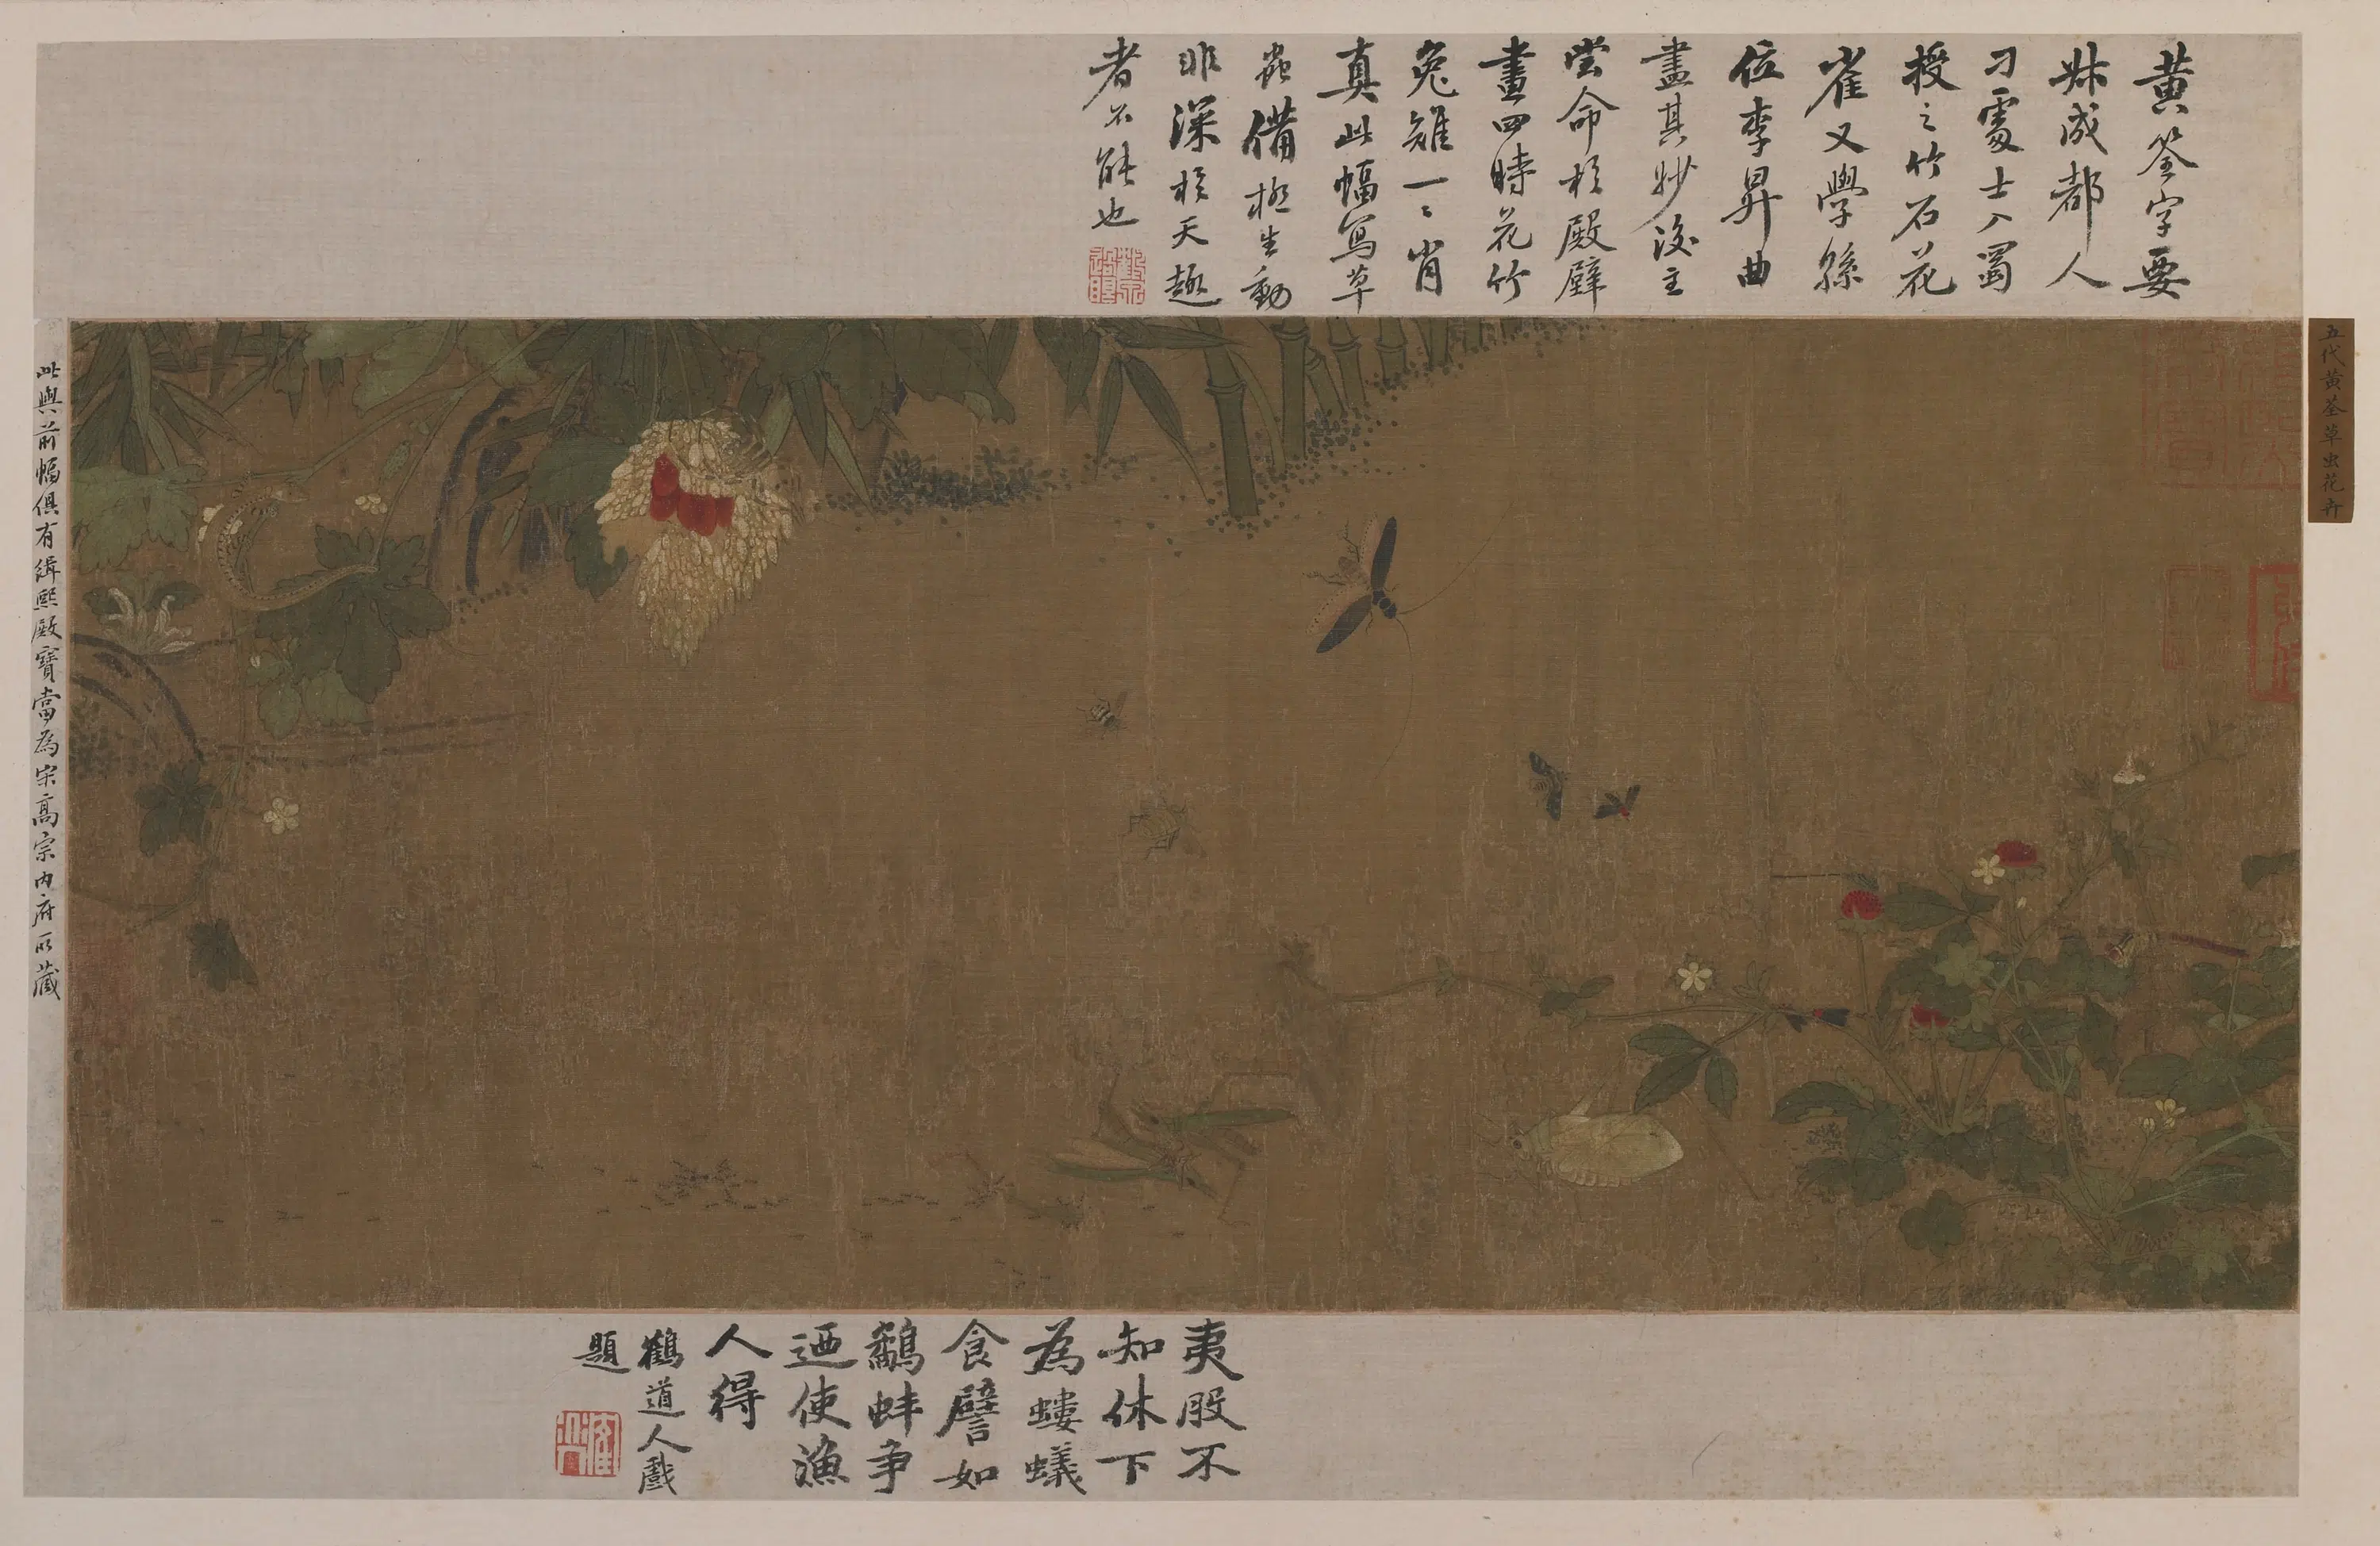 黄筌字要
𠦑成都人
刁處士入蜀
授之竹石花
雀又學孫
位李昇曲
盡其妙後主
嘗命於殿壁
畫四時花竹
兔雉一〻肖
真此幅寫草
蟲備極生動
非深於天趣
者不能也
五代黄荃草虫花卉
此與前幅俱有緝熙殿寳當為宋高宗内府所藏
夷股不
知休下
為螻蟻
食譬如
鷸蚌争
迺使漁
人得
鶴道人戲
題